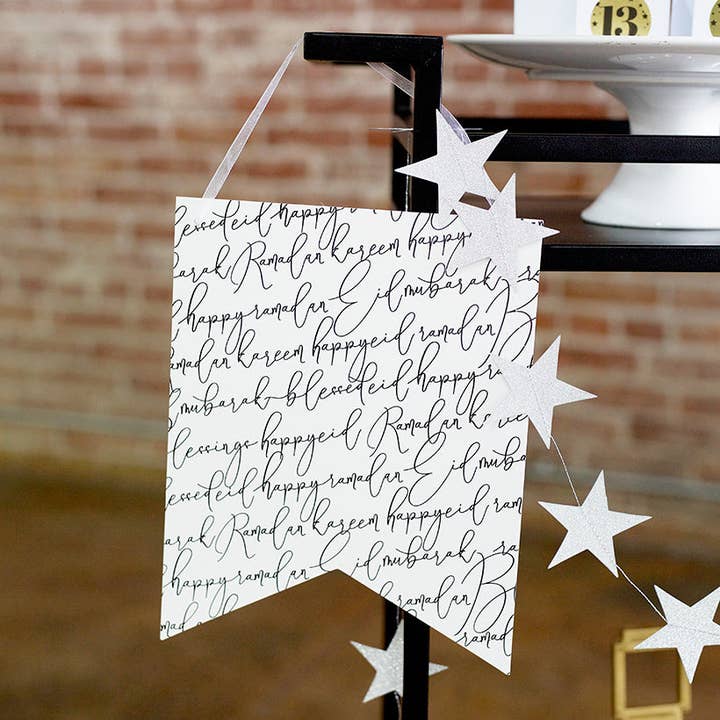 13
essedeid happy ramad
arak Ramadan kareem happy
happy ramadan Eid mubarak
ramadan kareem happyeid ramadan B
mubarak blessedeid happy
lessings happyeid Ramadan k
essedeid happy ramadan Eid muba
arak Ramadan kareem happyeid ram
happy ramadan Eid mubarak ra
amad ramadan B
ramad